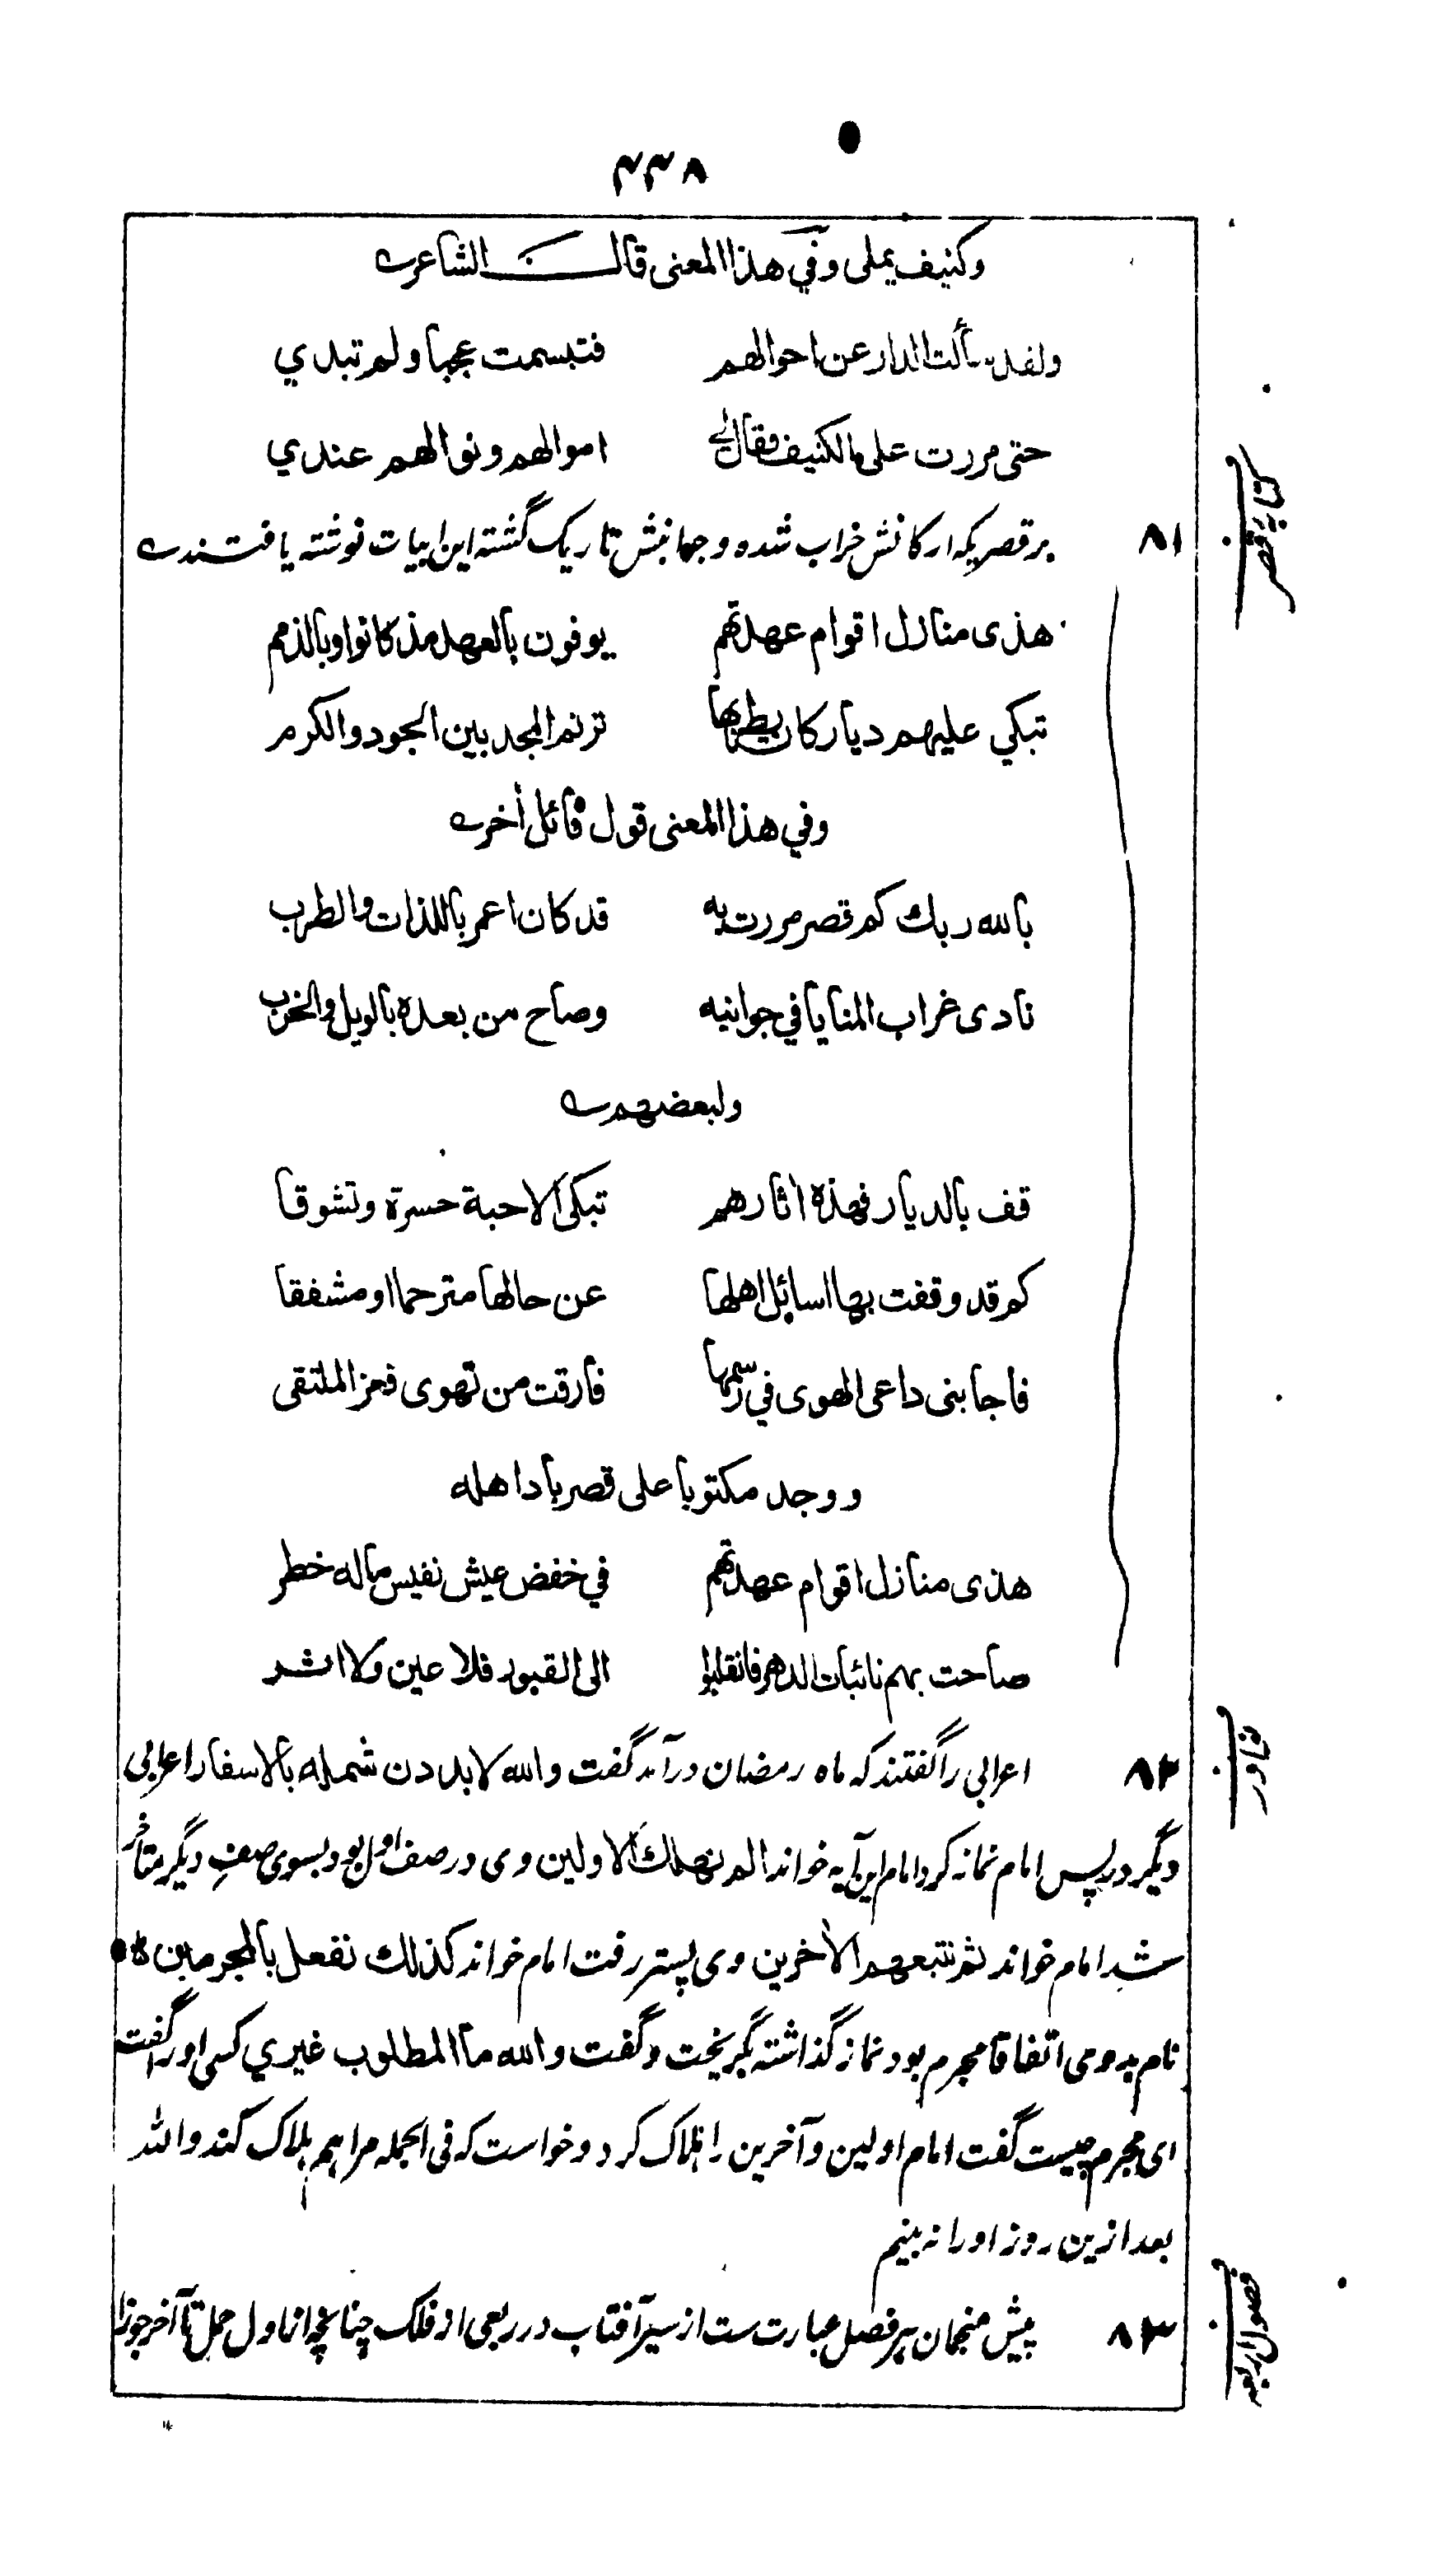 ۴۳۸
وكنيف يملى وفي هذا المعنى قال الشاعر
ولقد سألت الدار عن احوالهم فتبسمت عجبا ولم تبدي
حتى مررت على الكنيف فقال لي اموالهم ونوالهم عندي
۸۱ بر قصریکه ارکانش خراب شده و جهانبش تاریک گشته این ابیات نوشته یافتند
كتابة قصر
هذى منازل اقوام عهدتهم يوفون بالعهد مذ كانوا وبالذمم
تبكي عليهم ديار كان يطربها ترنم المجد بين الجود والكرم
وفي هذا المعنى قول قائل أخر
بالله ربك كم قصر مررت به قد كان اعمر باللذات والطرب
نادى غراب المنايا في جوانبه وصاح من بعده بالويل والخرب
ولبعضهم
قف بالديار فهذه اثارهم تبكى الاحبة حسرة وتشوقا
كم قد وقفت بها اسائل اهلها عن حالها مترحما او مشفقا
فاجابنى داعى الهوى في رسمها فارقت من تهوى فعز الملتقى
ووجد مكتوبا على قصر باد اهله
هذى منازل اقوام عهدتهم في خفض عيش نفيس ماله خطر
صاحت بهم نائبات الدهر فانقلبوا الى القبور فلا عين ولا اثر
۸۲ اعرابی را گفتند که ماه رمضان درآمد گفت والله لابددن شمله بالاسفار اعرابی
نوادر
دیگر در پس امام نماز کرد امام این آیه خواند الم نهلك الاولين وی در صف اول بود بسوی صف دیگر متأخر
شد امام خواند ثم نتبعهم الأخرين وی پستر رفت امام خواند كذلك نفعل بالمجرمين ه
نام بدوی اتفاقا مجرم بود نماز گذاشته بگریخت و گفت والله ما المطلوب غيري کسی اورا گفت
ای مجرم چیست گفت امام اولین و آخرین را هلاک کرد و خواست که فی الجمله مرا هم هلاک کند والله
بعد ازین روز او را نه بینم
۸۳ پیش منجمان هر فصل عبارت ست از سیر آفتاب در ربعی از فلک چنانچه از اول حمل تا آخر جوزا
فصول اربعه